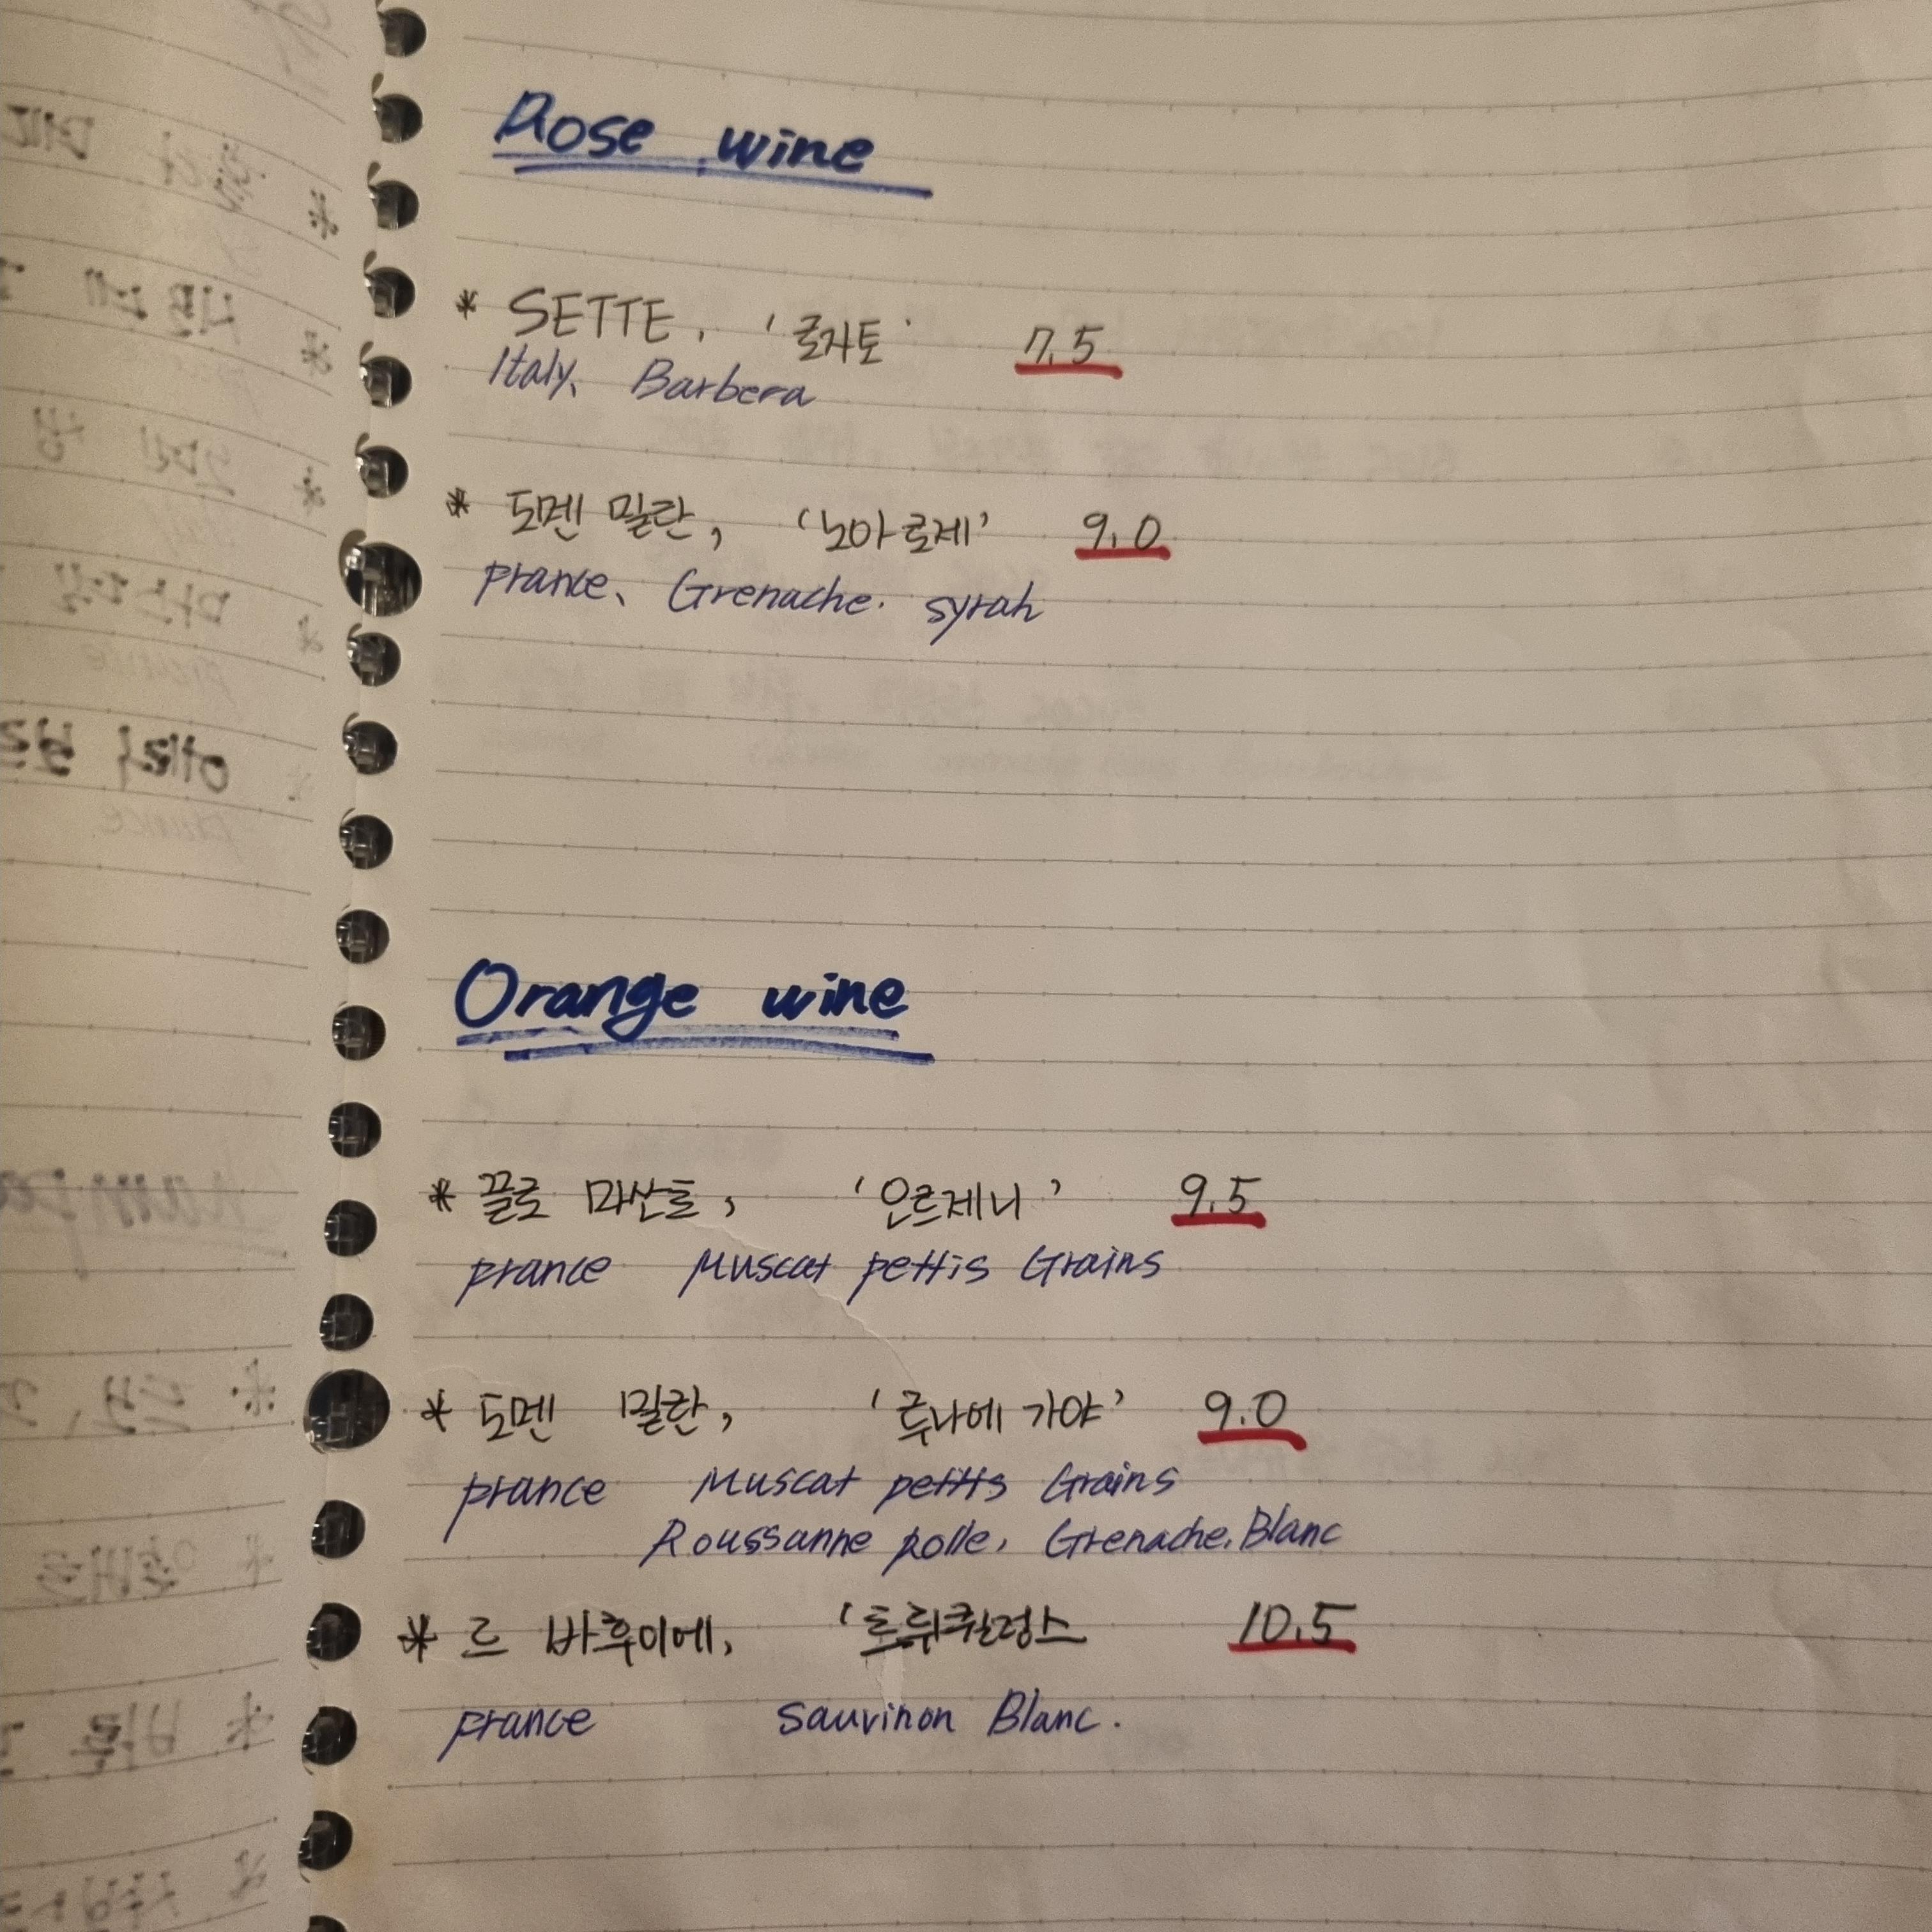 Rose wine
* SETTE, '로자토' 7.5
Italy, Barbera
* 도멘 밀란, '노아 로제' 9.0
prance, Grenache. syrah
Orange wine
* 끌로 마산토, '오르제니' 9.5
prance Muscat pettis Grains
* 도멘 밀란, '루나에 가야' 9.0
prance Muscat pettis Grains
Roussanne rolle, Grenache. Blanc
* 르 바후이에, '토튀퀼렁스 10.5
prance Sauvinon Blanc.